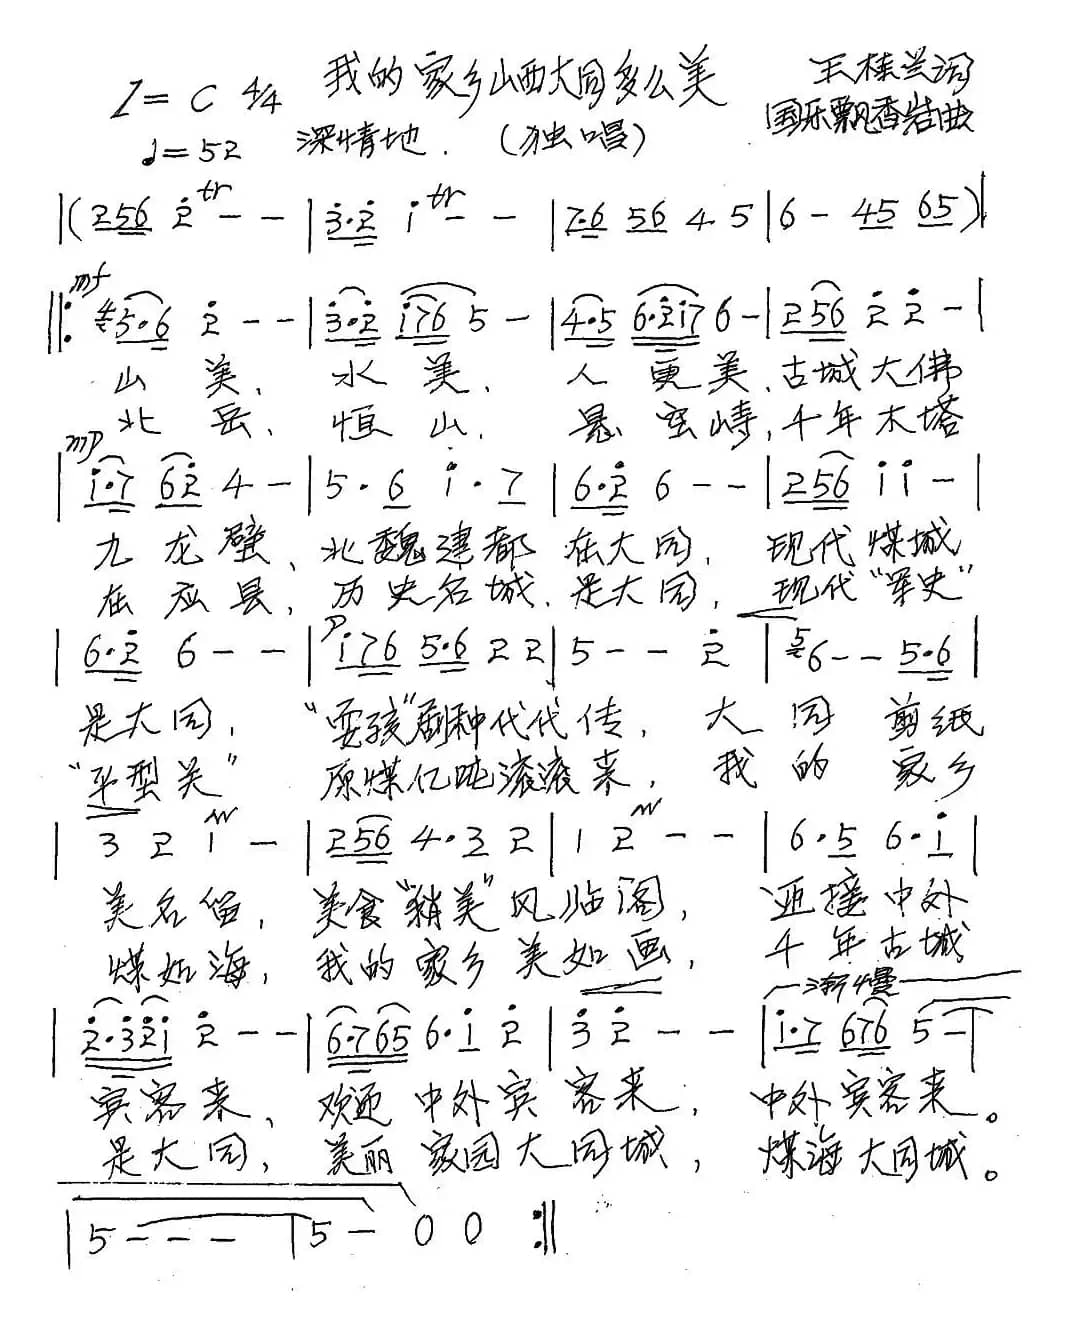 我的家乡山西大同多么美 王桂兰词
1=C 4/4
♩=52 深情地. (独唱) 国乐飘香岩曲
|(256 2̇ tr - - |3̇·2̇ 1̇ tr - - |7·6 56 4 5|6 - 45 65)|
mf
‖: 5·6 2̇ - - |3̇·2̇ 1̇76 5 - |4·5 6·2̇1̇7 6 -|256 2̇ 2̇ -|
山 美, 水 美, 人 更美,古城大佛
北 岳, 恒 山, 悬 空寺,千年木塔
mp
|1̇·7 62̇ 4 -|5·6 1̇·7|6·2̇ 6 - -|256 1̇ 1̇ -|
九龙壁、北魏建都 在大同, 现代煤城
在应县, 历史名城, 是大同, 现代“军史”
p
|6·2̇ 6 - -|1̇76 5·6 2 2|5 - - 2̇|⁵6 - - 5·6|
是大同, “耍孩”剧种代代传, 大 同 剪纸
“平型关” 原煤亿吨滚滚来, 我的 家乡
|3 2 1̇ -|256 4·3 2|1 2 - -|6·5 6·1̇|
美名留, 美食“稍美”风临阁, 迎接中外
煤如海, 我的家乡美如画, 千年古城
渐慢
|2̇·3̇2̇1̇ 2̇ - -|6·765 6·1̇ 2̇|3̇ 2̇ - -|1̇·7 676 5 -|
宾客来、欢迎 中外宾客来, 中外宾客来。
是大同, 美丽 家园大同城, 煤海大同城。
|5 - - -|5 - 0 0 :‖